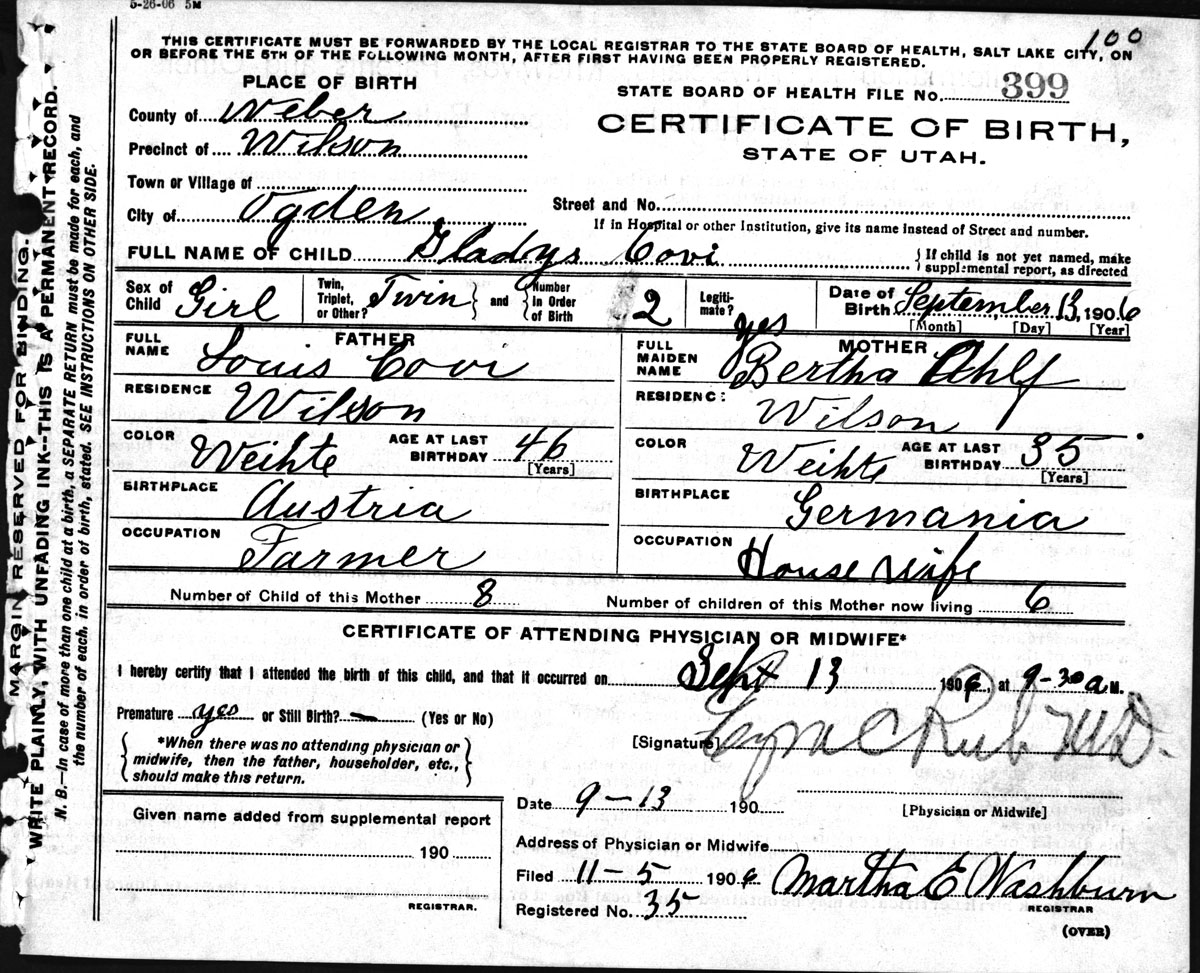 5-26-06 5M
100
THIS CERTIFICATE MUST BE FORWARDED BY THE LOCAL REGISTRAR TO THE STATE BOARD OF HEALTH, SALT LAKE CITY, ON
OR BEFORE THE 5TH OF THE FOLLOWING MONTH, AFTER FIRST HAVING BEEN PROPERLY REGISTERED.
PLACE OF BIRTH
STATE BOARD OF HEALTH FILE No. 399
County of Weber
CERTIFICATE OF BIRTH,
Precinct of Wilson
STATE OF UTAH.
Town or Village of
City of Ogden
Street and No.
If in Hospital or other Institution, give its name instead of Street and number.
FULL NAME OF CHILD Gladys Covi
{ If child is not yet named, make
supplemental report, as directed
Sex of Child Girl
Twin, Triplet, or Other? Twin } and { Number in Order of Birth 2
Legiti-mate? yes
Date of Birth September 13, 1906
[Month] [Day] [Year]
FATHER
FULL NAME Louis Covi
RESIDENCE Wilson
COLOR Weihte AGE AT LAST BIRTHDAY 46
[Years]
BIRTHPLACE Austria
OCCUPATION Farmer
MOTHER
FULL MAIDEN NAME Bertha Ahlf
RESIDENC: Wilson
COLOR Weihte AGE AT LAST BIRTHDAY 35
[Years]
BIRTHPLACE Germania
OCCUPATION House wife
Number of Child of this Mother 8 Number of children of this Mother now living 6
CERTIFICATE OF ATTENDING PHYSICIAN OR MIDWIFE*
I hereby certify that I attended the birth of this child, and that it occurred on Sept 13 1906, at 9-30 a M.
Premature yes or Still Birth? — (Yes or No)
{ *When there was no attending physician or
midwife, then the father, householder, etc.,
should make this return. }
[Signature] M.D.
[Physician or Midwife]
Date 9-13 190
Given name added from supplemental report
190
REGISTRAR.
Address of Physician or Midwife
Filed 11-5 1906 Martha E Washburn
REGISTRAR
Registered No. 35
(OVER)
MARGIN RESERVED FOR BINDING.
WRITE PLAINLY, WITH UNFADING INK--THIS IS A PERMANENT RECORD.
N. B.—In case of more than one child at a birth, a SEPARATE RETURN must be made for each, and
the number of each, in order of birth, stated. SEE INSTRUCTIONS ON OTHER SIDE.